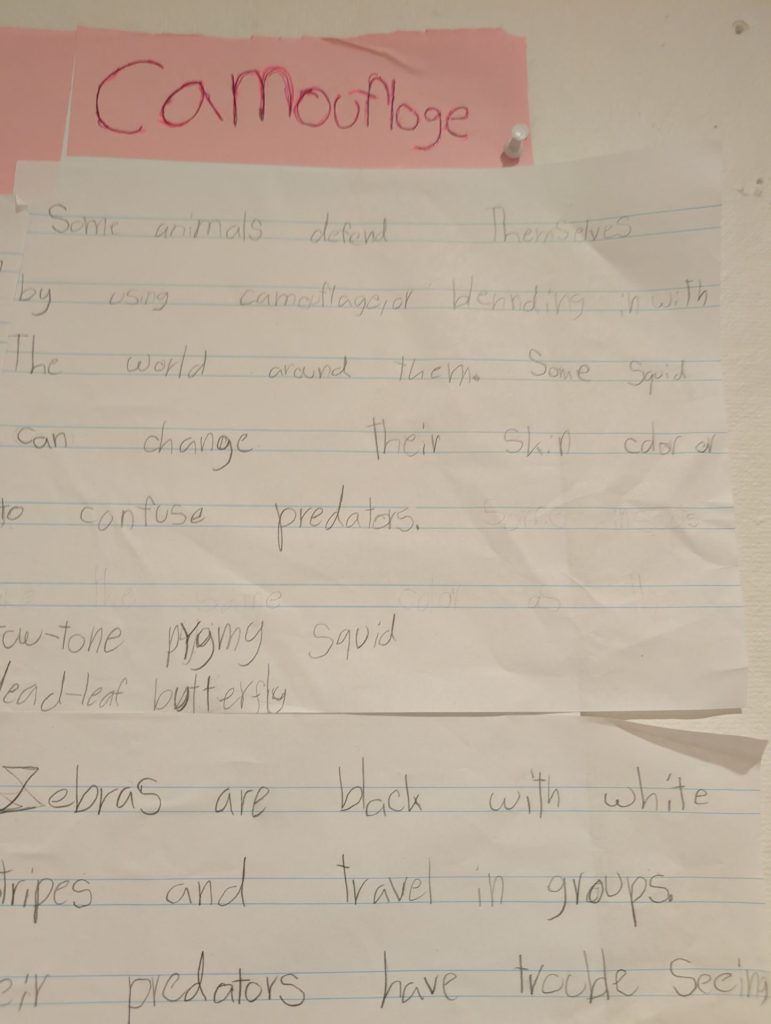 Camoufloge
Some animals defend Themselves
by using camouflage, or blennding in with
The world around them. Some Squid
can change Their skin color or
to confuse predators. Some
the same color as the
tw-tone pygmy squid
dead-leaf butterfly
Zebras are black with white
tripes and travel in groups.
eir predators have trouble Seeing